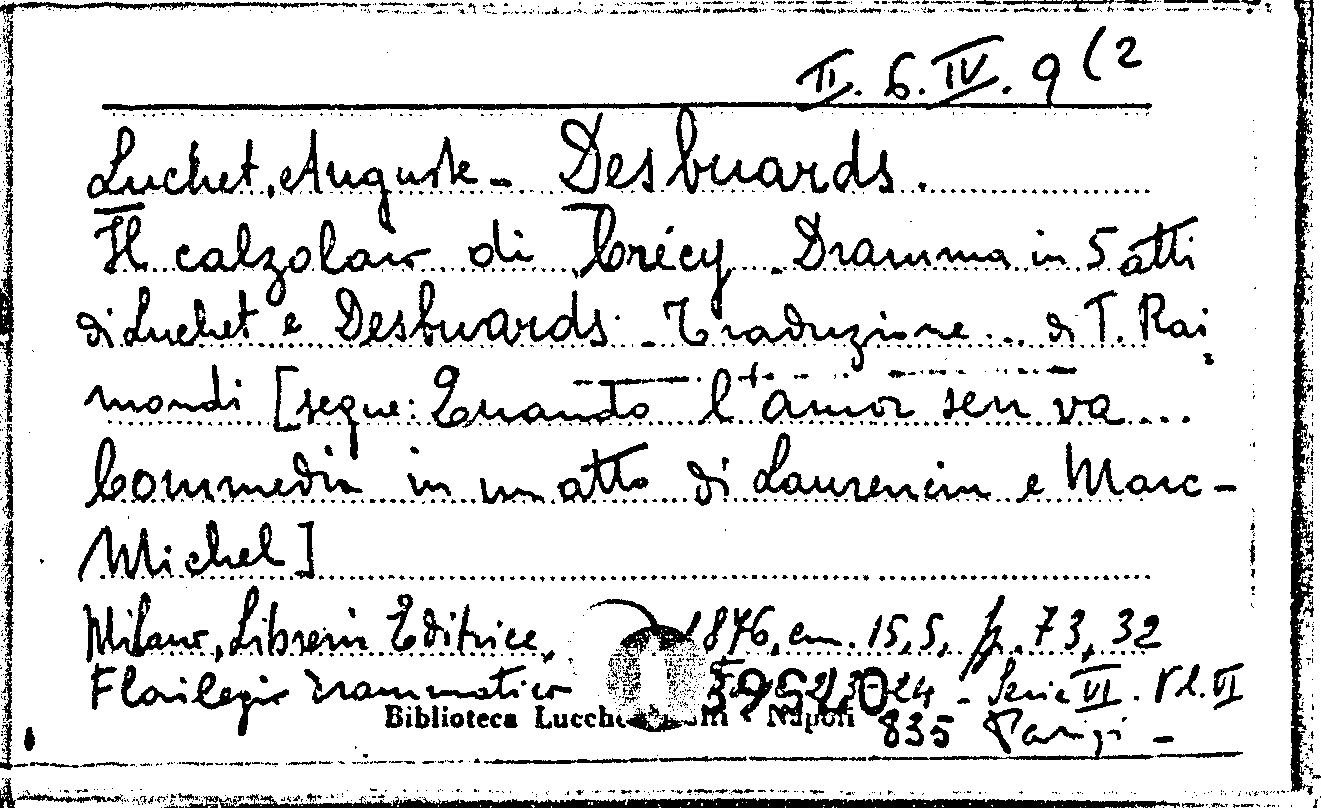 II. 6. IV. 9 (2
Luchet, Auguste - Desbuards.
Il calzolaio di Crécy. Dramma in 5 atti
di Luchet e Desbuards. - Traduzione... di T. Rai
mondi [segue: Quando l'amor sen va...
Commedia in un atto di Laurencin e Marc-
Michel]
Milano, Libreria Editrice, 1876, cm. 15,5, p. 73, 32
Florilegio drammatico 24 - Serie VI. Vol. VI
39520
Biblioteca Lucchesi Palli - Napoli
835 Parigi -